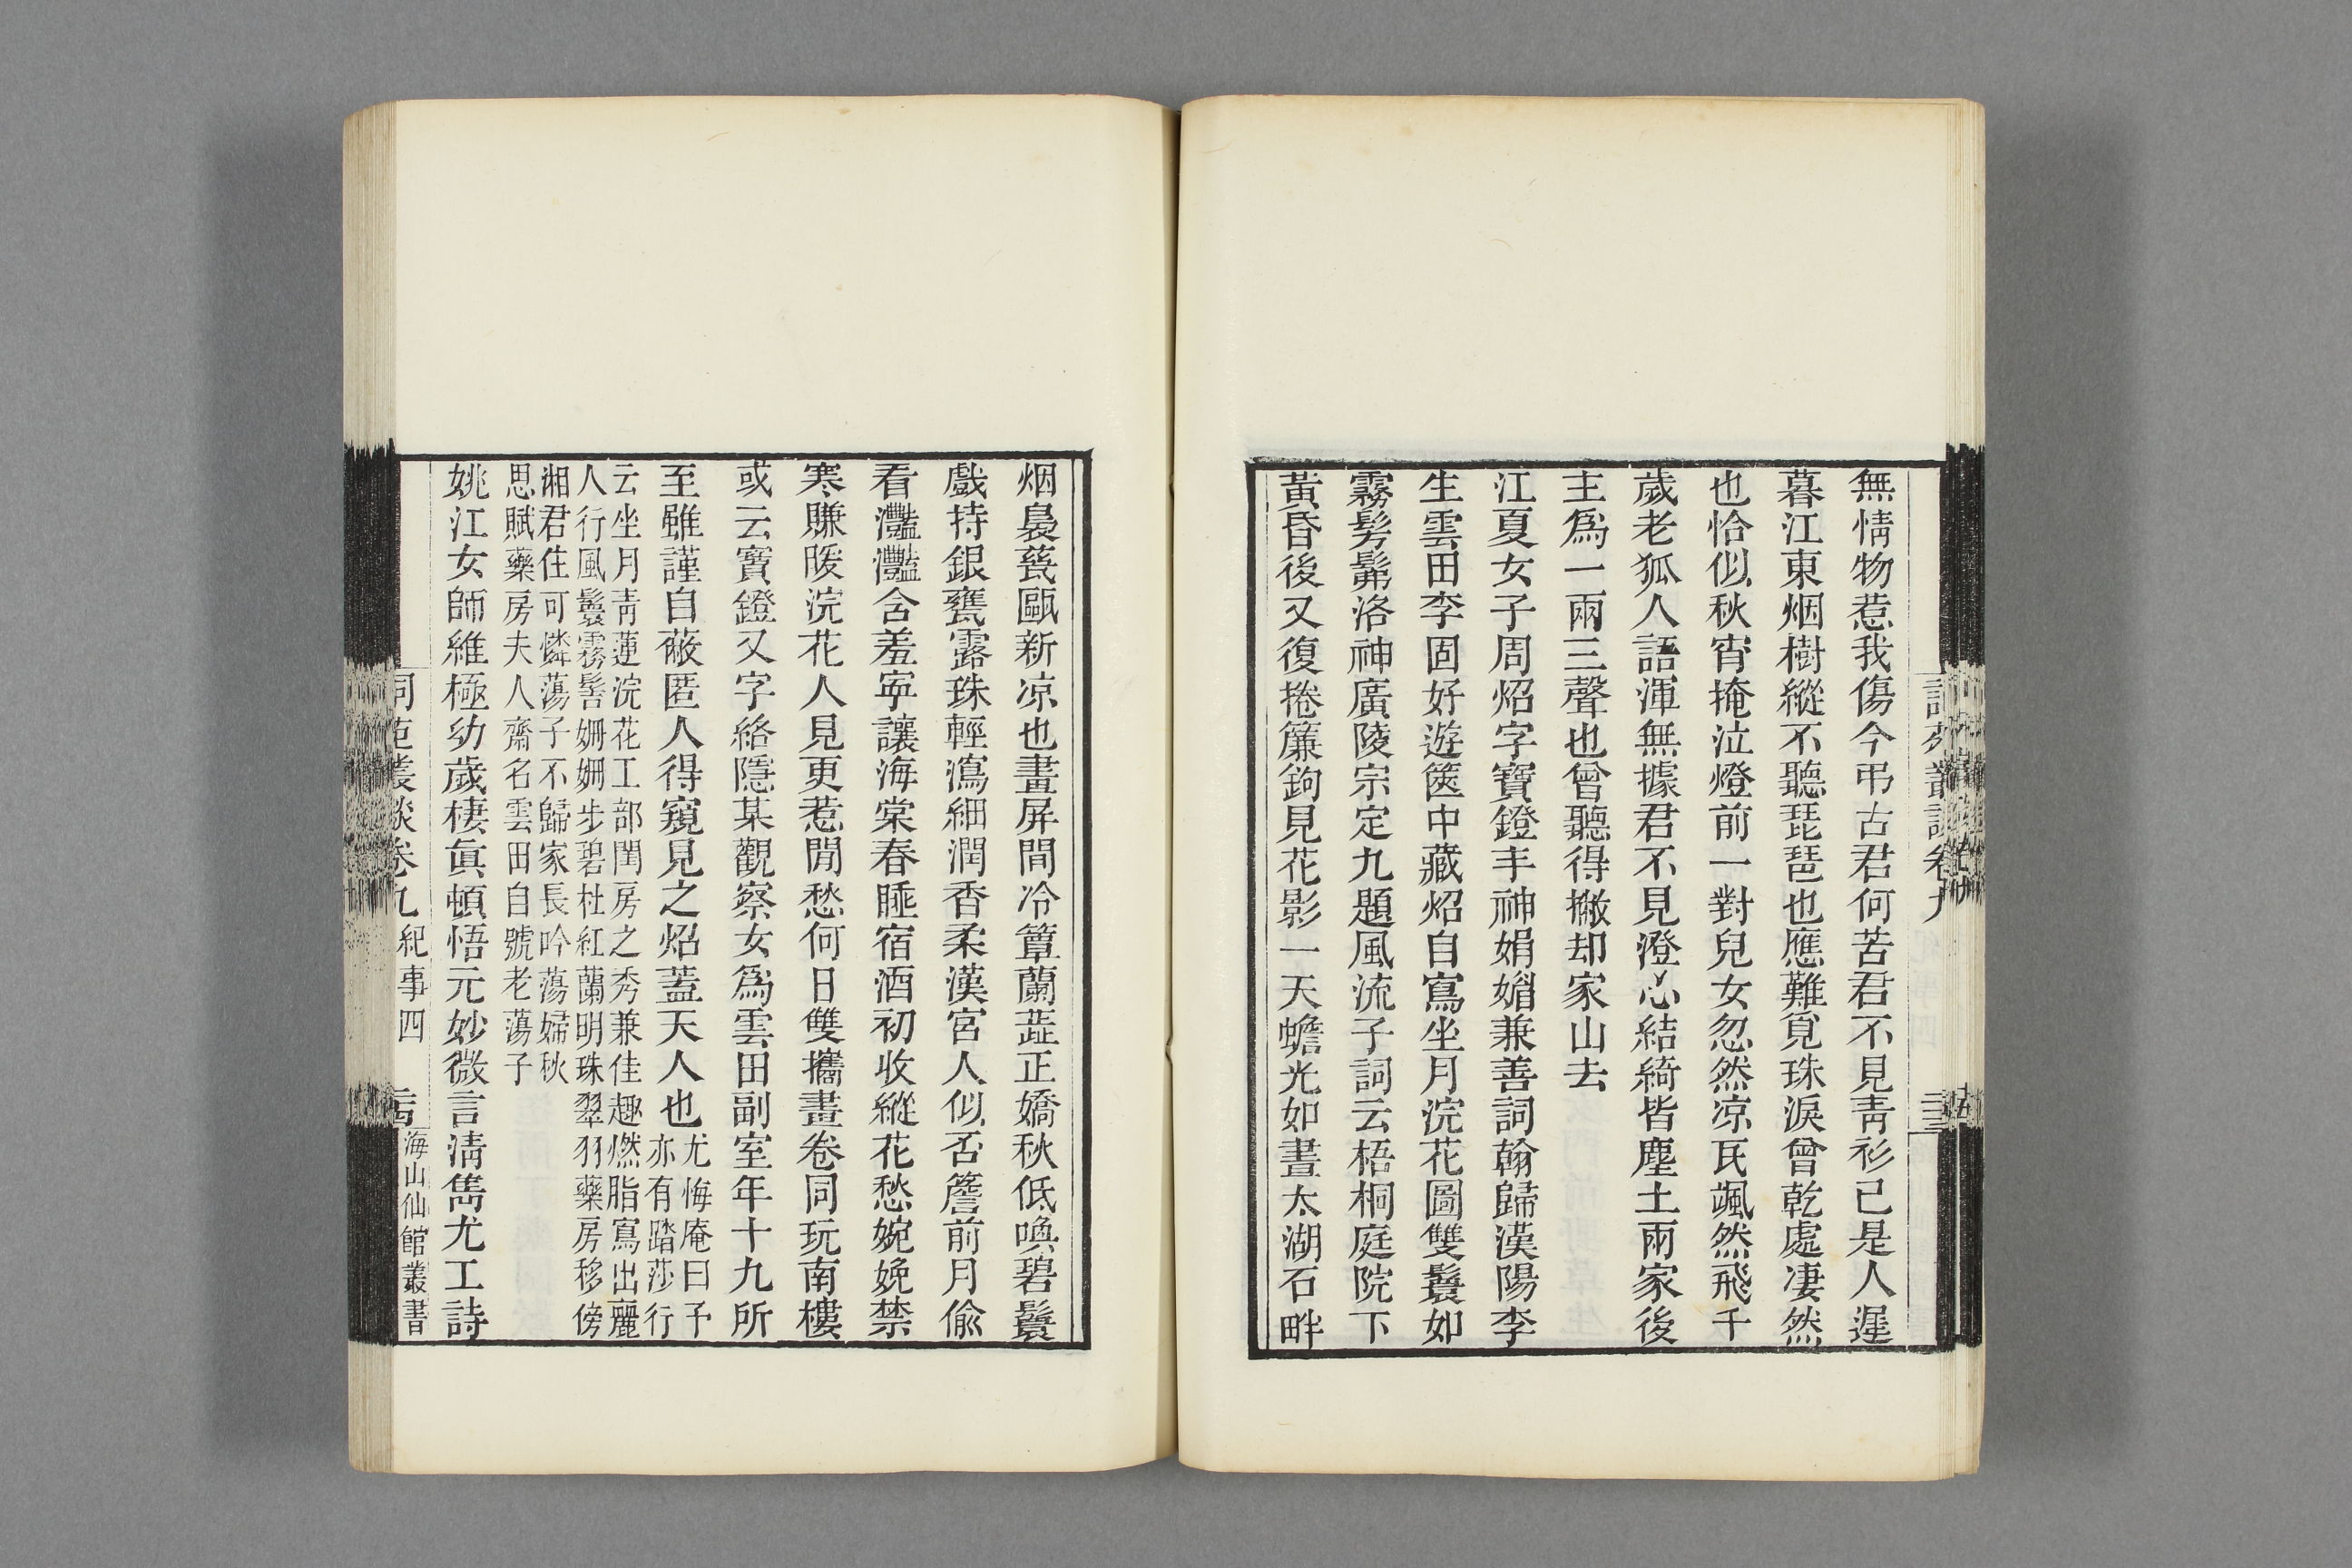 無情物惹我傷今弔古君何苦君不見靑衫已是人遲
暮江東烟樹縱不聽琵琶也應難覓珠淚曾乾處凄然
也恰似秋宵掩泣燈前一對兒女忽然凉瓦颯然飛千
歲老狐人語渾無據君不見澄心結綺皆塵土兩家後
主爲一兩三聲也曾聽得撇却家山去
江夏女子周炤字寶鐙丰神娟媚兼善詞翰歸漢陽李
生雲田李固好遊篋中藏炤自寫坐月浣花圖雙鬟如
霧髣髴洛神廣陵宗定九題風流子詞云梧桐庭院下
黃昏後又復捲簾鉤見花影一天蟾光如晝太湖石畔
烟裊甆甌新凉也畫屏間冷簟蘭蕋正嬌秋低喚碧鬟
戲持銀甕露珠輕瀉細潤香柔漢宮人似否簷前月偸
看灧灧含羞寧讓海棠春睡宿酒初收縱花愁婉娩禁
寒賺暖浣花人見更惹閒愁何日雙攜畫卷同玩南樓
或云寶鐙又字絡隱某觀察女爲雲田副室年十九所
至雖謹自蔽匿人得窺見之炤蓋天人也
尤悔庵曰予
亦有踏莎行
云坐月靑蓮浣花工部閨房之秀兼佳趣燃脂寫出麗
人行風鬟霧髻姍姍步碧杜紅蘭明珠翠羽藥房移傍
湘君住可憐蕩子不歸家長吟蕩婦秋
思賦藥房夫人齋名雲田自號老蕩子
姚江女師維極幼歲棲眞頓悟元妙微言淸雋尤工詩
詞苑叢談卷九 紀事四 二十四 海山仙館叢書